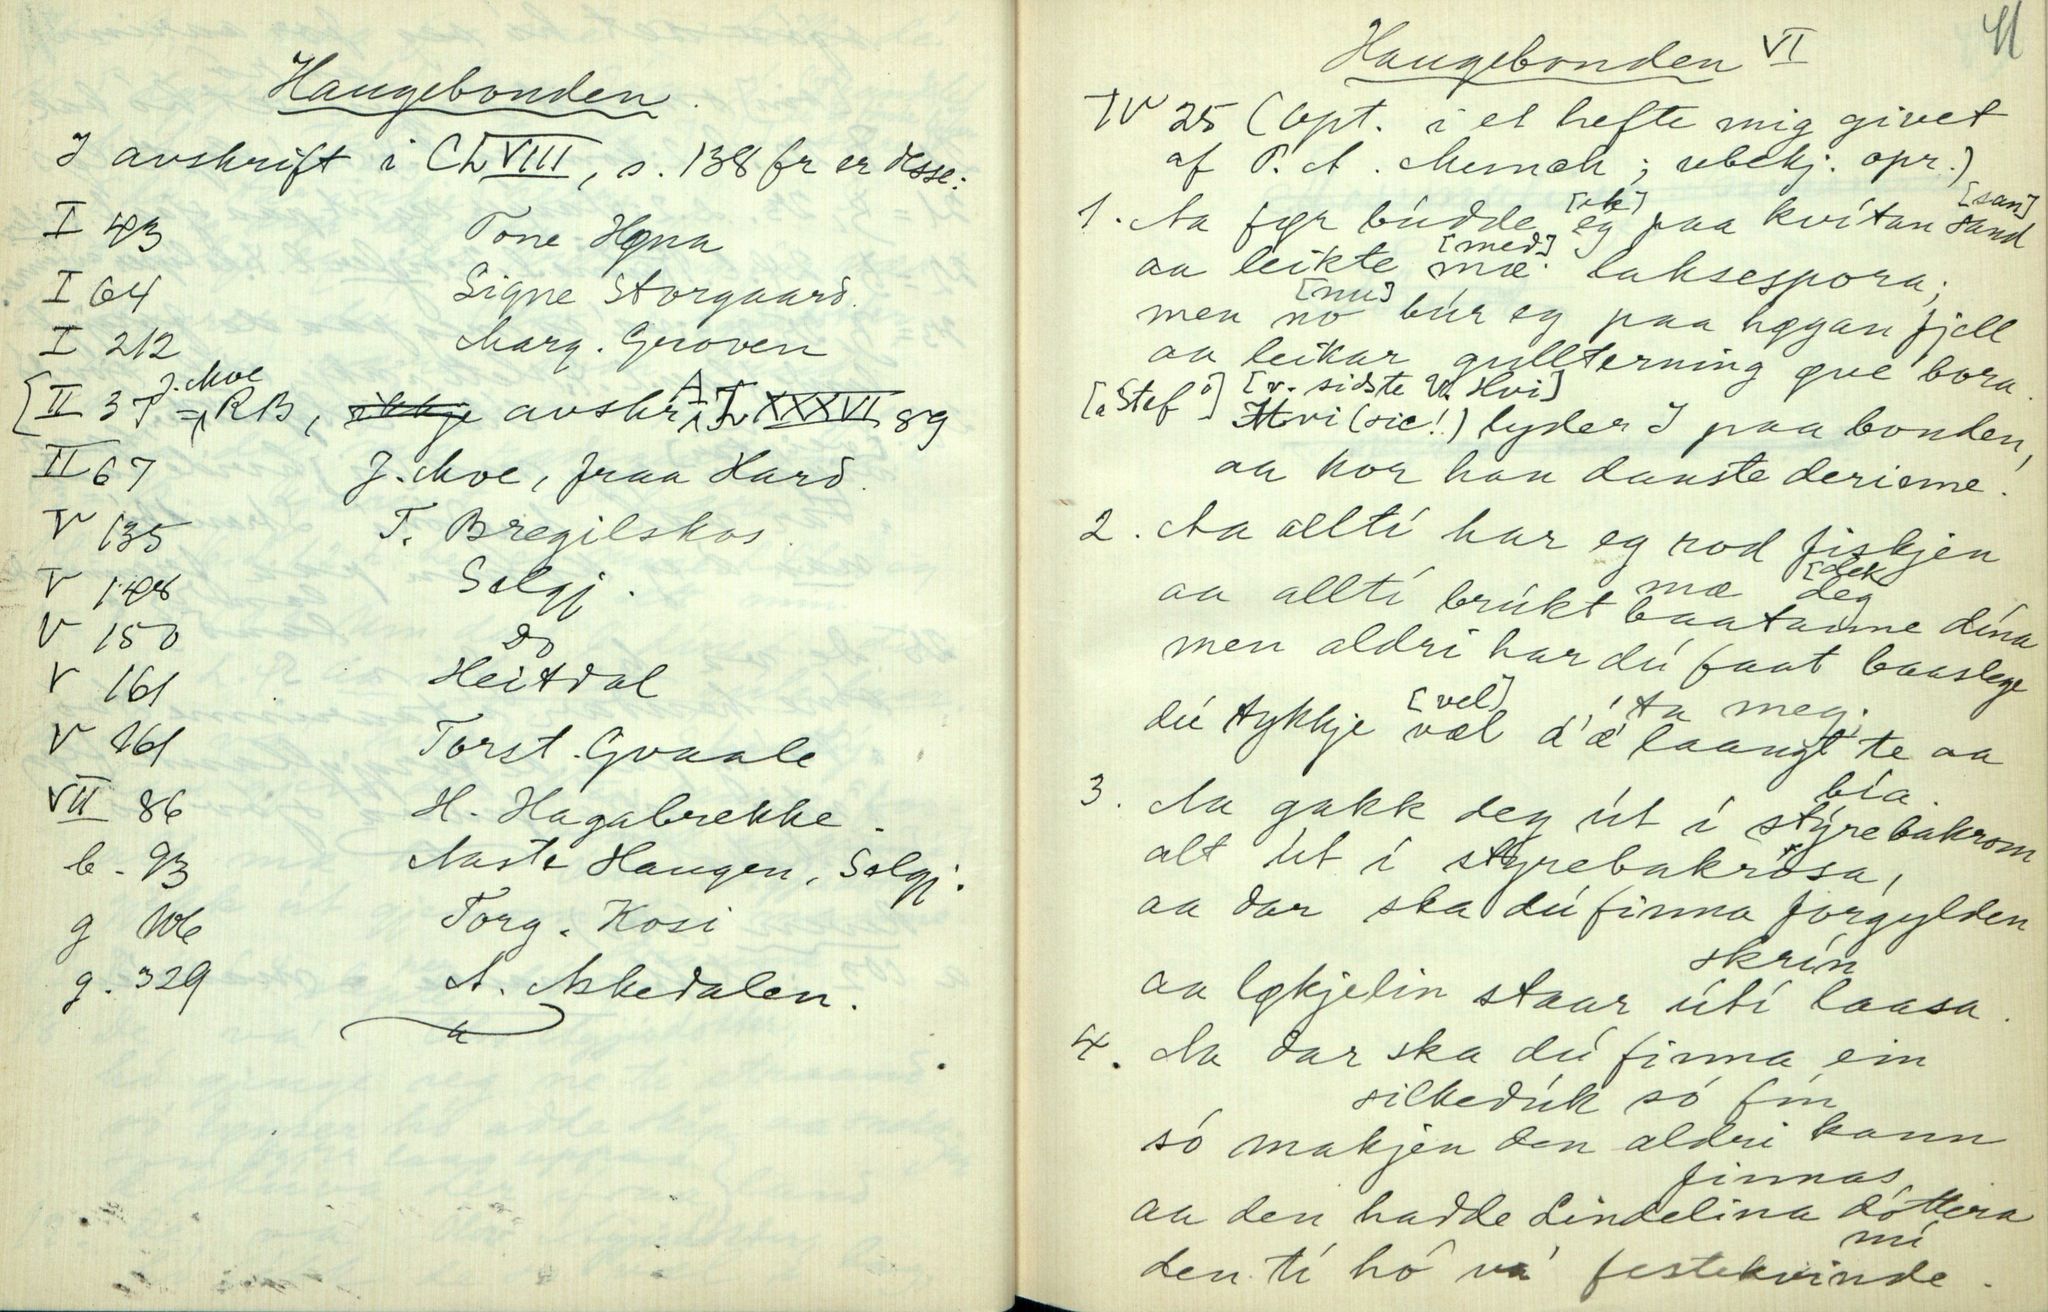 Haugebonden.
I avskrift i Ch VIII, s. 138 fr er desse:
I 43 Tone Høgna
I 64 Signe Storgaard.
I 212 Marg. Groven
J. Moe
[II 37 = RB, ikkje avskr. i XXXVI 89
II 67 J. Moe, fraa Hard.
V 135 T. Bregilskas.
V 148 Selgj.
V 150 Do
V 161 Heitdal
V 161 Torst. Gvaale
VII 86 H. Hagabrekke.
b. 93 Aaste Haugen, Selgj.
g 106 Torg. Kosi
g. 329 A. Askedalen.
Haugebonden VI
41
IV 25 (Opt. i et hefte mig givet
af P. A. Munch; ubekj. opr.)
[ek] [san]
1. Aa fyr búdde eg paa kvítan sand
[med]
aa leikte mæ laksespora;
[nu]
men no búr eg paa høgan fjell
aa leikar gullterning øve bora.
["Stef"] [v. sidste Vh. Hvi]
Hvi (sic!) lyder I paa bonden,
aa kor han danste derinne.
2. Aa alltí har eg rod fiskjen
mæ [dek
deg
aa alltí brúkt baatanne dína
men aldri har dú faat baaslege
[vel] 'ta meg;
dú tykkje væl d'æ laangt te aa
bía.
3. Aa gakk deg út í stýrebakrom
alt út í stýrebakrósa,
aa dar ska dú finna forgylden
skrín
aa løkjelin staar útí laasa.
4. Aa dar ska dú finna ein
silkedúk só fín
só makjen den aldri kann
finnas
aa den hadde Lindelina dóttera
mí
den tí hó vá festekvinde.